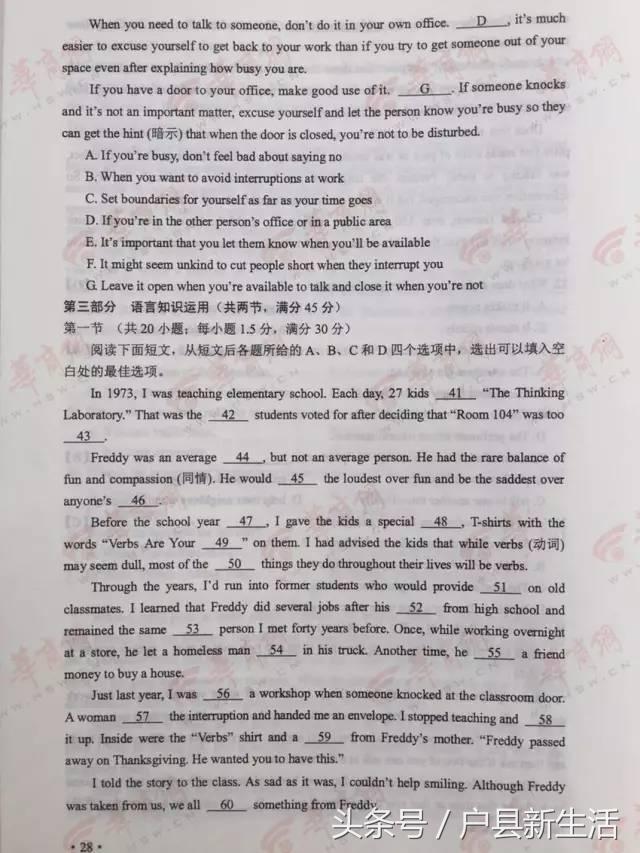 When you need to talk to someone, don't do it in your own office. D , it's much
easier to excuse yourself to get back to your work than if you try to get someone out of your
space even after explaining how busy you are.
If you have a door to your office, make good use of it. G . If someone knocks
and it's not an important matter, excuse yourself and let the person know you're busy so they
can get the hint (暗示) that when the door is closed, you're not to be disturbed.
A. If you're busy, don't feel bad about saying no
B. When you want to avoid interruptions at work
C. Set boundaries for yourself as far as your time goes
D. If you're in the other person's office or in a public area
E. It's important that you let them know when you'll be available
F. It might seem unkind to cut people short when they interrupt you
G. Leave it open when you're available to talk and close it when you're not
第三部分 语言知识运用（共两节，满分 45 分）
第一节 （共 20 小题；每小题 1.5 分，满分 30 分）
阅读下面短文，从短文后各题所给的 A、B、C 和 D 四个选项中，选出可以填入空
白处的最佳选项。
In 1973, I was teaching elementary school. Each day, 27 kids 41 "The Thinking
Laboratory." That was the 42 students voted for after deciding that "Room 104" was too
43 .
Freddy was an average 44 , but not an average person. He had the rare balance of
fun and compassion (同情). He would 45 the loudest over fun and be the saddest over
anyone's 46 .
Before the school year 47 , I gave the kids a special 48 , T-shirts with the
words "Verbs Are Your 49 " on them. I had advised the kids that while verbs (动词)
may seem dull, most of the 50 things they do throughout their lives will be verbs.
Through the years, I'd run into former students who would provide 51 on old
classmates. I learned that Freddy did several jobs after his 52 from high school and
remained the same 53 person I met forty years before. Once, while working overnight
at a store, he let a homeless man 54 in his truck. Another time, he 55 a friend
money to buy a house.
Just last year, I was 56 a workshop when someone knocked at the classroom door.
A woman 57 the interruption and handed me an envelope. I stopped teaching and 58
it up. Inside were the "Verbs" shirt and a 59 from Freddy's mother. "Freddy passed
away on Thanksgiving. He wanted you to have this."
I told the story to the class. As sad as it was, I couldn't help smiling. Although Freddy
was taken from us, we all 60 something from Freddy.
·28·
头条号／户县新生活
华商网
WWW.HSW.CN